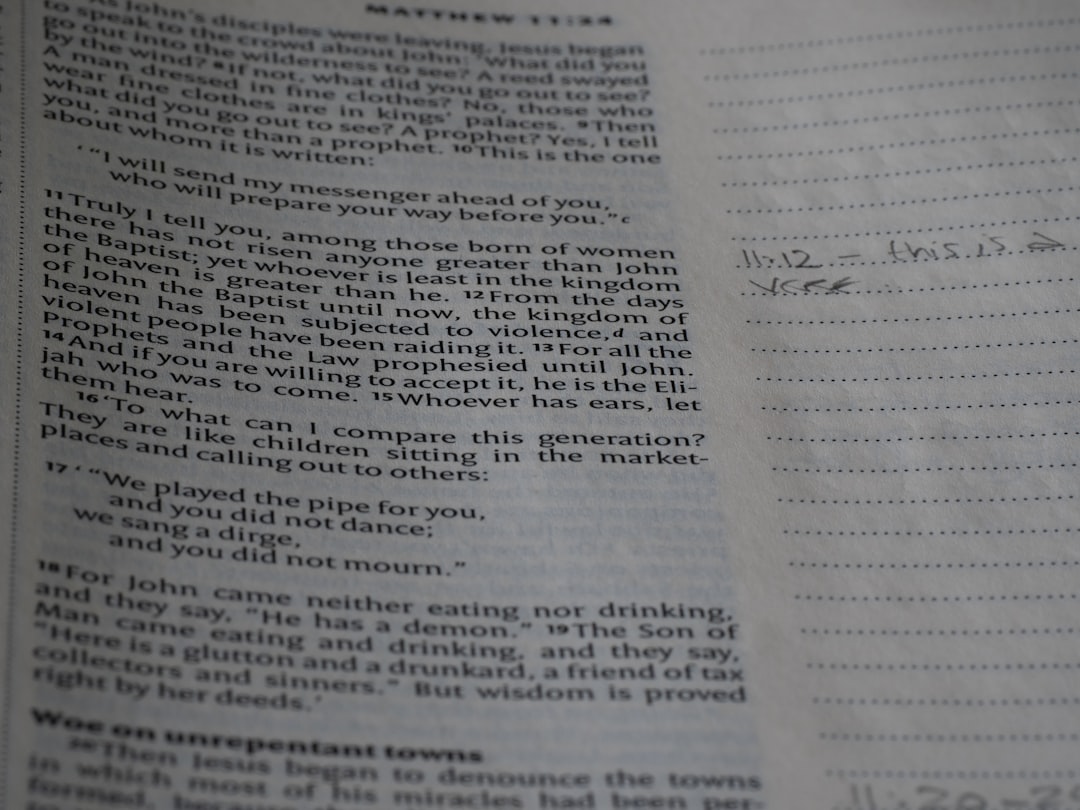 MATTHEW 11:24
As John's disciples were leaving, Jesus began
to speak to the crowd about John: 'What did you
go out into the wilderness to see? A reed swayed
by the wind? ⁸If not, what did you go out to see?
A man dressed in fine clothes? No, those who
wear fine clothes are in kings' palaces. ⁹Then
what did you go out to see? A prophet? Yes, I tell
you, and more than a prophet. ¹⁰This is the one
about whom it is written:
' "I will send my messenger ahead of you,
who will prepare your way before you." c
¹¹Truly I tell you, among those born of women
there has not risen anyone greater than John
the Baptist; yet whoever is least in the kingdom
of heaven is greater than he. ¹²From the days
of John the Baptist until now, the kingdom of
heaven has been subjected to violence,d and
violent people have been raiding it. ¹³For all the
Prophets and the Law prophesied until John.
¹⁴And if you are willing to accept it, he is the Eli-
jah who was to come. ¹⁵Whoever has ears, let
them hear.
¹⁶'To what can I compare this generation?
They are like children sitting in the market-
places and calling out to others:
¹⁷ ' "We played the pipe for you,
and you did not dance;
we sang a dirge,
and you did not mourn."
¹⁸For John came neither eating nor drinking,
and they say, "He has a demon." ¹⁹The Son of
Man came eating and drinking, and they say,
"Here is a glutton and a drunkard, a friend of tax
collectors and sinners." But wisdom is proved
right by her deeds.'
Woe on unrepentant towns
²⁰Then Jesus began to denounce the towns
in which most of his miracles had been per-
formed, because
11:12 – this is a
11:20-